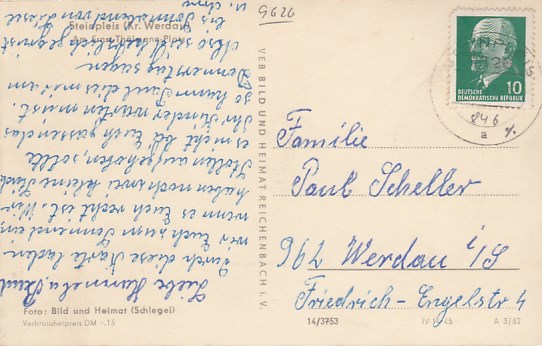 9626
Steinpleis (Kr. Werdau)
Am Ernst-Thälmann-Platz
Liebe
Durch diese Karte laden
wir Euch zum Sonnabend ein,
wenn es Euch recht ist. Wir
haben noch zwei kleine Stück
Stollen aufgehoben, sollte
es nicht bei Euch passen
Ihr Kinder warten müsst.
so kann Paul dies mir am
Donnerstag sagen.
Also seid herzlich gegrüßt
bis Sonnabend von
u.
Foto: Bild und Heimat (Schlegel)
Verbraucherpreis DM –.15
VEB BILD UND HEIMAT REICHENBACH i. V.
10
DEUTSCHE
DEMOKRATISCHE REPUBLIK
a
Familie
Paul Scheller
962 Werdau i/S
Friedrich-Engelstr 4
14/3753
A 3/62